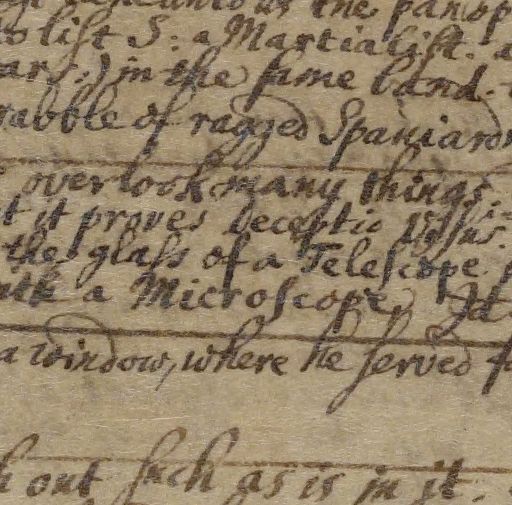 the panop
list S: a Martialist. a
ars,) in the same land.
rabble of ragged Spaniard
overlook many things.
t it proves deceptio visus.
the glass of a Telescope
a Microscope, It
a window, where he served
h out such as is in it.